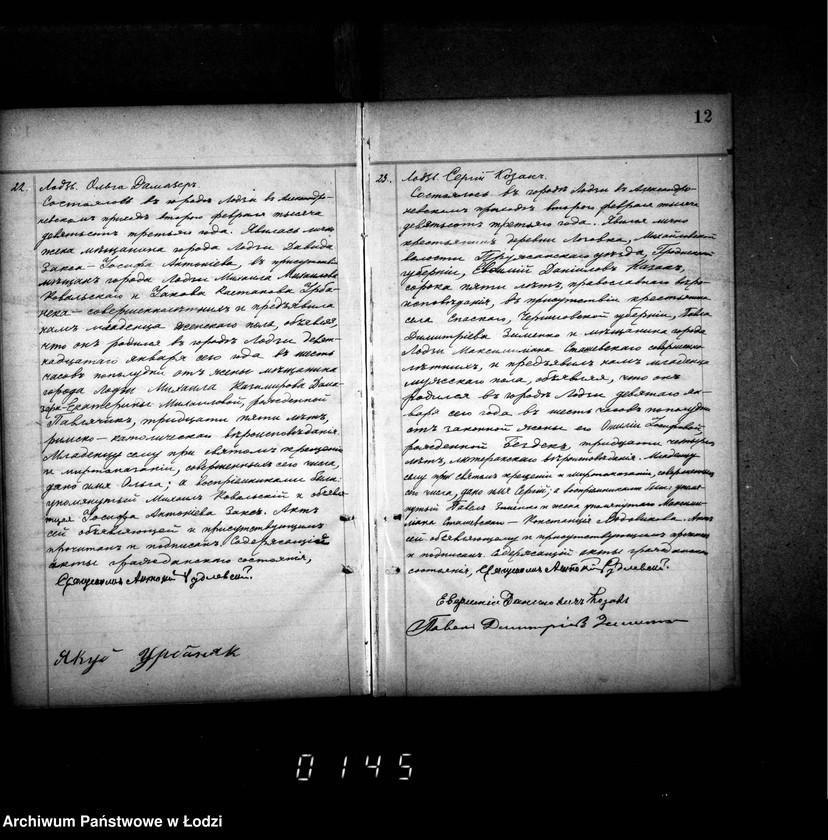 12
22. Лодзь. Ольга Дамазеръ.
Состоялось въ городѣ Лодзи въ Александро-
невскомъ приходѣ второго февраля тысяча
девятьсотъ третьяго года. Явилась
жена мѣщанина города Лодзи Давида
Закса - Іосифа Антоніева въ присутствіи
мѣщанъ города Лодзи Михаила Михайлова
Ковальскаго и Якова Каетанова Урба-
няка - совершеннолѣтнихъ и предъявила
намъ младенца женскаго пола, объявляя,
что онъ родился въ городѣ Лодзи
января сего года въ шесть
часовъ пополудни отъ жены мѣщанина
города Лодзи Михаила Казимирова Дама-
зера - Екатерины рожденной
тридцати пяти лѣтъ,
римско-католическаго вѣроисповѣданія.
Младенцу сему при святомъ крещеніи
и миропомазаніи, совершенныхъ сего числа,
дано имя Ольга; а воспріемниками были:
упомянутый Михаилъ Ковальскій и объяв-
Антоніева Заксъ. Актъ
сей объявляющей и присутствующимъ
прочитанъ и подписанъ. Содержащій
акты гражданскаго состоянія,
Священникъ Антоній Рудлевскій.
Якубъ Урбанякъ
23. Лодзь. Сергій Козакъ.
Состоялось въ городѣ Лодзи въ Александро-
невскомъ приходѣ второго февраля тысяча
девятьсотъ третьяго года. Явился лично
крестьянинъ деревни Логовка,
волости Пружанскаго уѣзда, Гродненской
губерніи, Даніиловъ Козакъ,
сорока пяти лѣтъ, православнаго вѣро-
исповѣданія, въ присутствіи крестьянина
села Спаскаго, Черниговской губерніи, Павла
Димитріева Зименко и мѣщанина города
Лодзи Максимиліана Сташевскаго соверше-
лѣтнихъ, и предъявилъ намъ младенца
мужскаго пола, объявляя, что онъ
родился въ городѣ Лодзи девятаго ян-
варя сего года въ шесть часовъ пополудни
отъ законной жены его Отиліи
рожденной тридцати четырехъ
лѣтъ, лютеранскаго вѣроисповѣданія. Младенцу
сему при святомъ крещеніи и миропомазаніи, совершенныхъ
сего числа, дано имя Сергій; а воспріемниками были: упомя-
нутый Павелъ Зименко и жена упомянутаго Макси-
Сташевскаго - Констанція Людвикова. Актъ
сей объявляющему и присутствующимъ прочитанъ
и подписанъ. Содержащій акты гражданскаго
состоянія, Священникъ Антоній Рудлевскій.
Даниловичъ Козакъ
Павелъ Димитріевъ Зименко
0145
Archiwum Państwowe w Łodzi